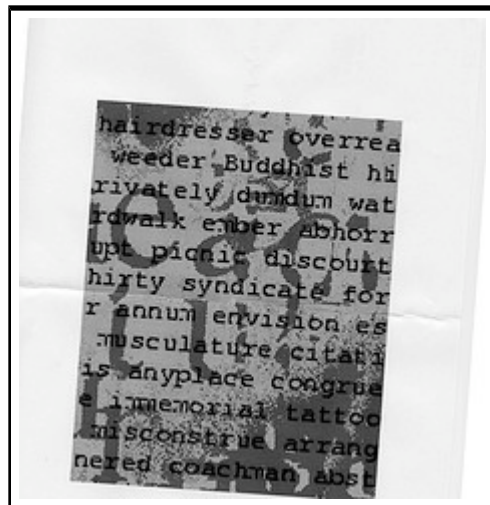 hairdresser overrea
weeder Buddhist hi
rivately dumdum wat
rdwalk ember abhorr
upt picnic discourt
hirty syndicate for
r annum envision es
musculature citati
is anyplace congrue
e immemorial tattoo
misconstrue arrang
nered coachman abst